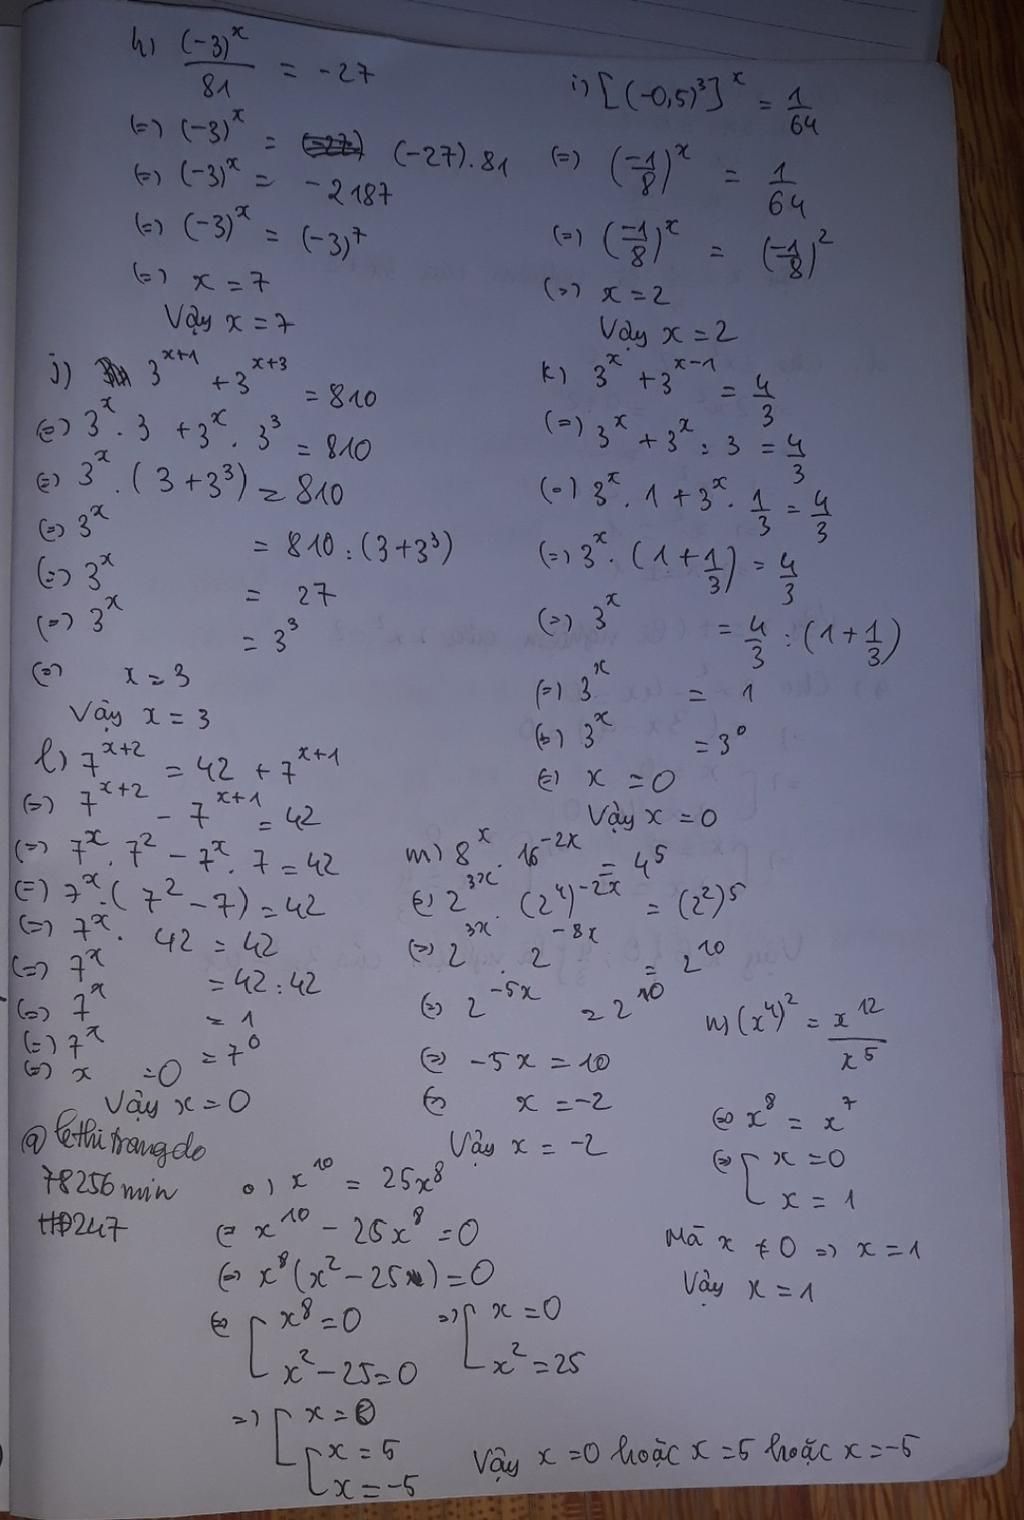 h) (-3)^x / 81 = -27
(=) (-3)^x = (-27).81
(=) (-3)^x = -2187
(=) (-3)^x = (-3)^7
(=) x = 7
Vậy x = 7
i) [(-0,5)^3]^x = 1/64
(=) (-1/8)^x = 1/64
(=) (-1/8)^x = (-1/8)^2
(=) x = 2
Vậy x = 2
j) 3^{x+1} + 3^{x+3} = 810
(=) 3^x . 3 + 3^x . 3^3 = 810
(=) 3^x . (3 + 3^3) = 810
(=) 3^x = 810 : (3+3^3)
(=) 3^x = 27
(=) 3^x = 3^3
(=) x = 3
Vậy x = 3
k) 3^x + 3^{x-1} = 4/3
(=) 3^x + 3^x : 3 = 4/3
(=) 3^x . 1 + 3^x . 1/3 = 4/3
(=) 3^x . (1 + 1/3) = 4/3
(=) 3^x = 4/3 : (1 + 1/3)
(=) 3^x = 1
(=) 3^x = 3^0
(=) x = 0
Vậy x = 0
l) 7^{x+2} = 42 + 7^{x+1}
(=) 7^{x+2} - 7^{x+1} = 42
(=) 7^x . 7^2 - 7^x . 7 = 42
(=) 7^x . (7^2 - 7) = 42
(=) 7^x . 42 = 42
(=) 7^x = 42 : 42
(=) 7^x = 1
(=) 7^x = 7^0
(=) x = 0
Vậy x = 0
m) 8^x . 16^{-2x} = 4^5
(=) 2^{3x} . (2^4)^{-2x} = (2^2)^5
(=) 2^{3x} . 2^{-8x} = 2^10
(=) 2^{-5x} = 2^10
(=) -5x = 10
(=) x = -2
Vậy x = -2
n) (x^4)^2 = x^12 / x^5
(=) x^8 = x^7
(=) [ x = 0
x = 1
Mà x ≠ 0 => x = 1
Vậy x = 1
@lethitrangdo
78256min
HD247
o) x^10 = 25x^8
(=) x^10 - 25x^8 = 0
(=) x^8 (x^2 - 25) = 0
(=) [ x^8 = 0 => [ x = 0
x^2 - 25 = 0 x^2 = 25
=> [ x = 0
[ x = 5
x = -5
Vậy x = 0 hoặc x = 5 hoặc x = -5